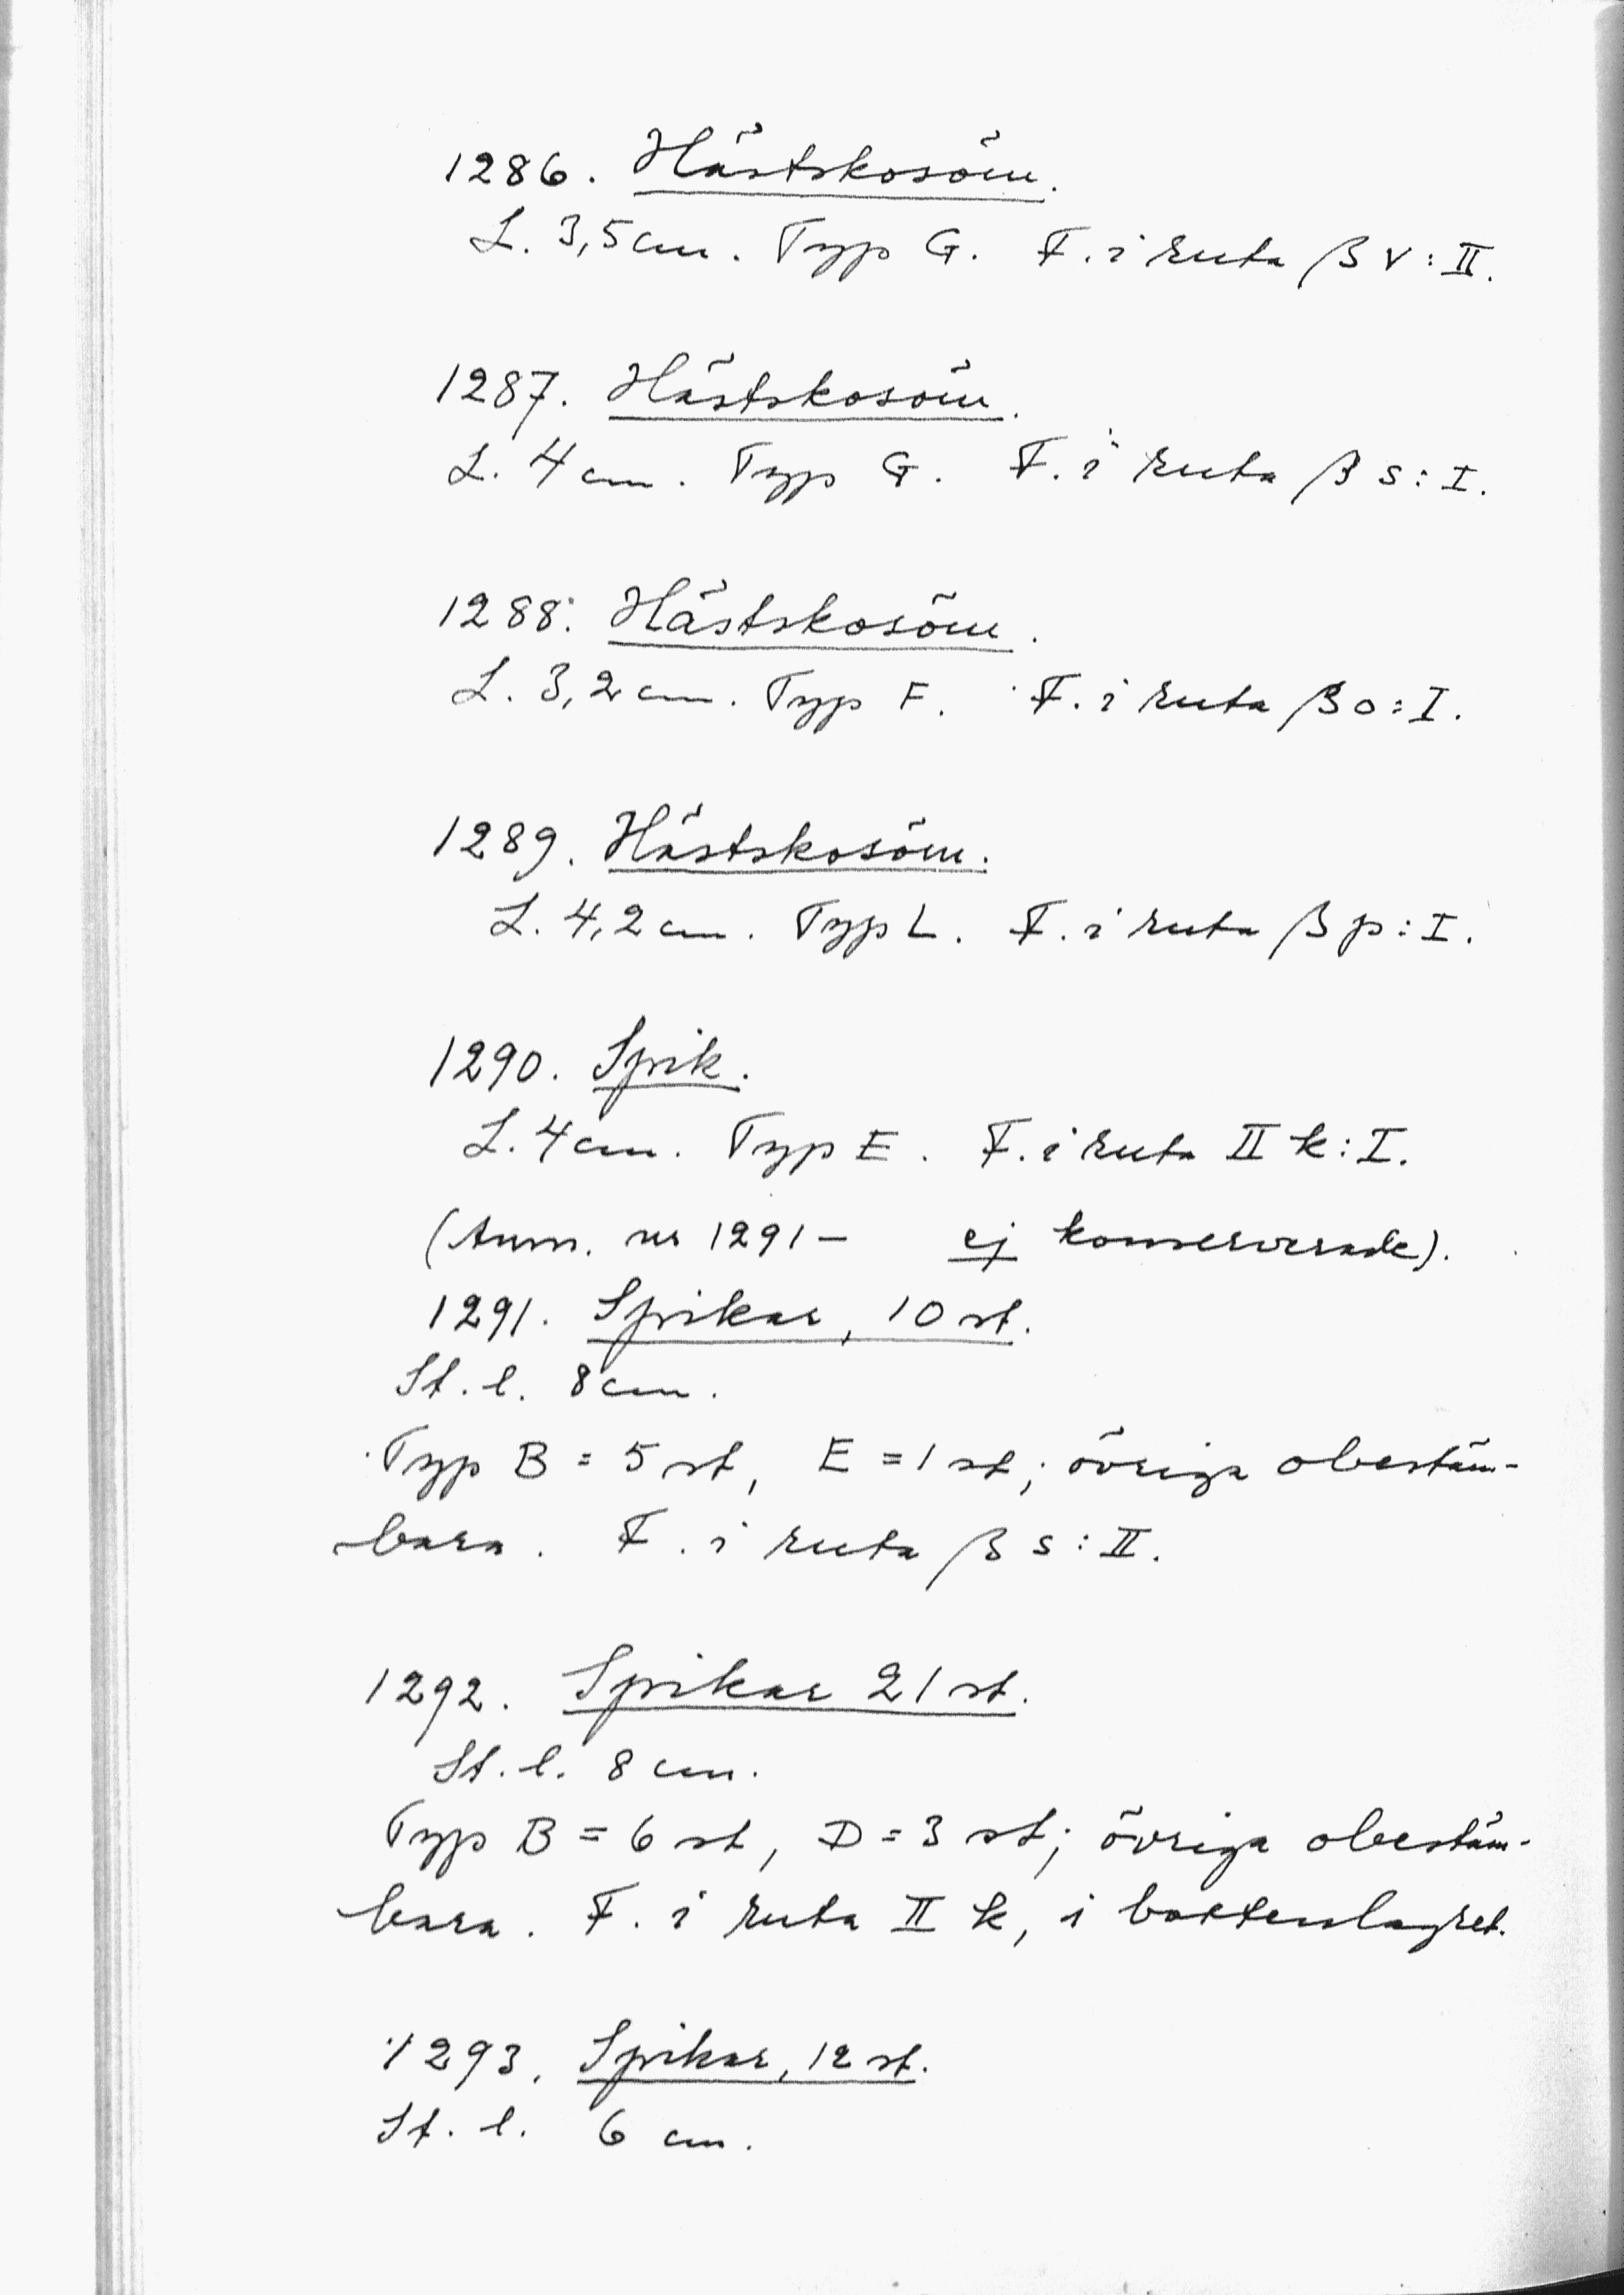 1286. Hästskosöm.
L. 3,5 cm. Typ G. F. i ruta β v : II.
1287. Hästskosöm.
L. 4 cm. Typ G. F. i ruta β s : I.
1288. Hästskosöm.
L. 3,2 cm. Typ F. F. i ruta β o : I.
1289. Hästskosöm.
L. 4,2 cm. Typ L. F. i ruta β p : I.
1290. Spik.
L. 4 cm. Typ E. F. i ruta II k : I.
(Anm. nr 1291 – ej konserverade).
1291. Spikar, 10 st.
St. l. 8 cm.
Typ B = 5 st, E = 1 st; övriga obestäm-
bara. F. i ruta β s : II.
1292. Spikar 21 st.
St. l. 8 cm.
Typ B = 6 st, D = 3 st; övriga obestäm-
bara. F. i ruta II k, i bottenlagret.
1293. Spikar, 12 st.
St. l. 6 cm.